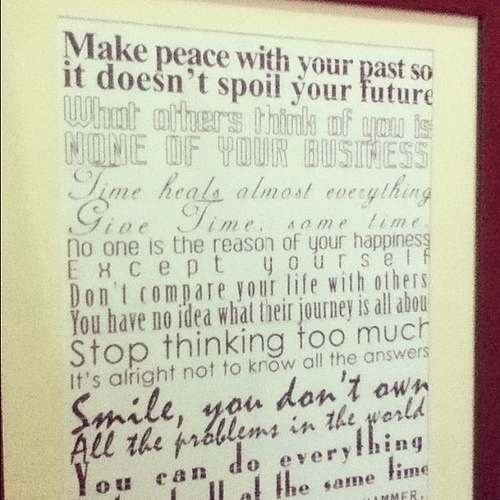 Make peace with your past so
it doesn't spoil your future
What others think of you is
NONE OF YOUR BUSINESS
Time heals almost everything
Give Time, some time.
No one is the reason of your happiness
Except yourself
Don't compare your life with others
You have no idea what their journey is all abou
Stop thinking too much
It's alright not to know all the answers
Smile, you don't own
All the problems in the world
You can do everything
at the same time
HAMMER,